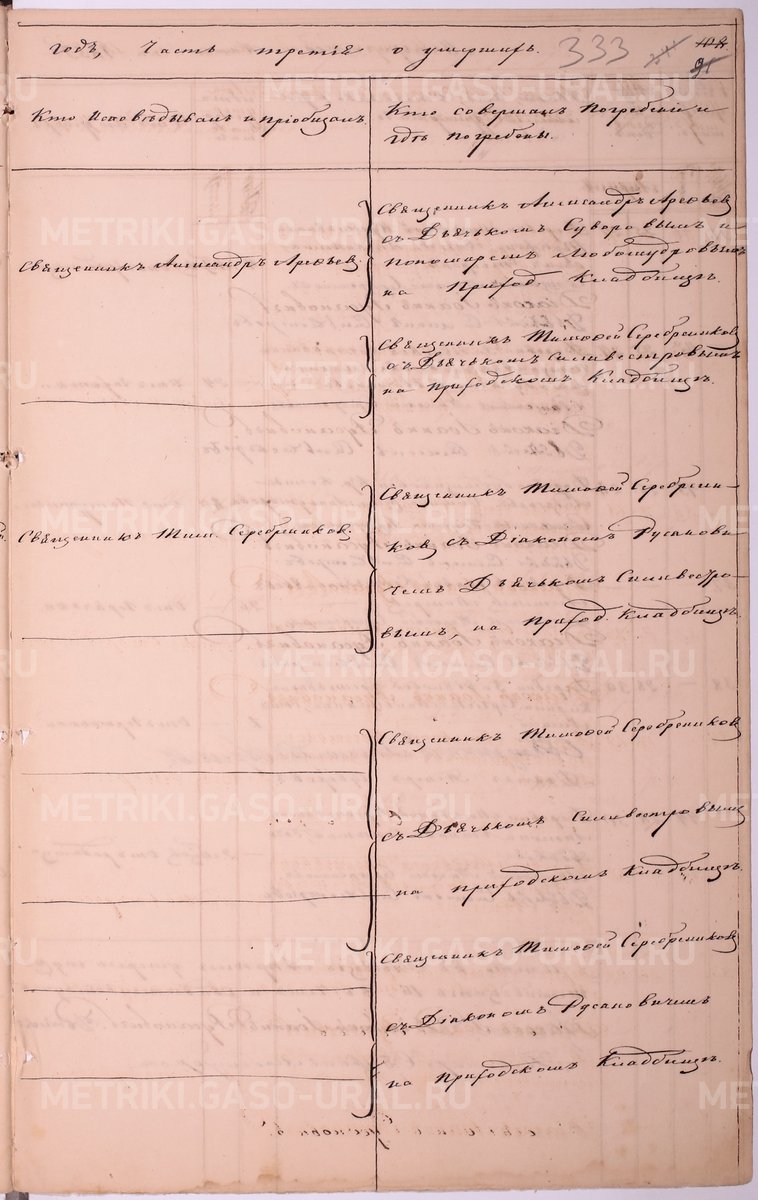 годъ, Часть третія о умершихъ. 333
91
Кто Исповѣдывалъ и пріобщалъ.
Кто совершалъ Погребеніе и
гдѣ погребены.
Священникъ Александръ Арефьевъ
Священникъ Александръ Арефьевъ
съ Дьячькомъ Суворовымъ и
пономаремъ Любомудровымъ
на Приход. Кладбищѣ.
Священникъ Тимофей Серебренниковъ
съ Дьячькомъ Силивестровымъ
на приходскомъ Кладбищѣ.
Священникъ Тим. Серебренниковъ
Священникъ Тимофей Серебренни-
ковъ съ Діакономъ Русанови-
чемъ Дьячькомъ Силивестро-
вымъ, на Приход. Кладбищѣ.
Священникъ Тимофей Серебрениковъ
съ Дьячькомъ Силивестровымъ
на приходскомъ Кладбищѣ.
Священникъ Тимофей Серебрениковъ
съ Діакономъ Русановичемъ
на Приходскомъ Кладбищѣ.
METRIKI.GASO-URAL.RU